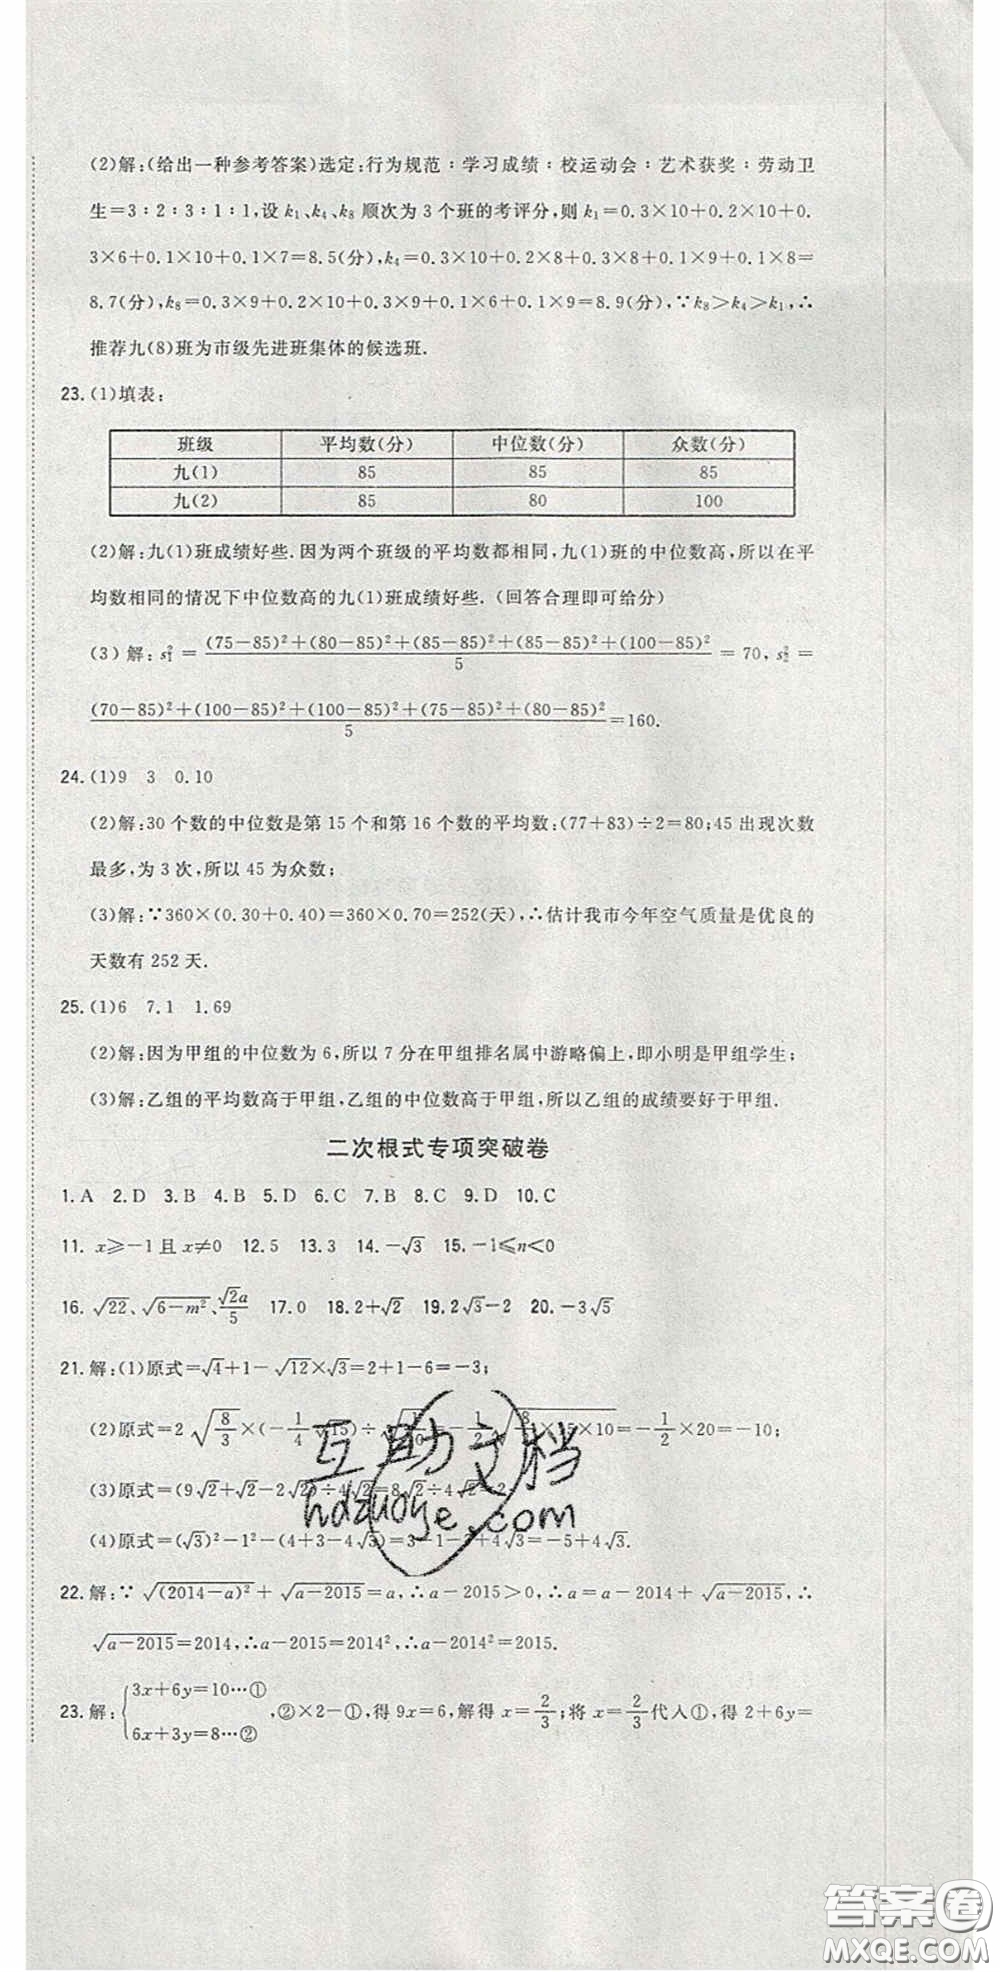 (2)解:(给出一种参考答案)选定:行为规范∶学习成绩∶校运动会∶艺术获奖∶劳动卫
生=3∶2∶3∶1∶1,设 k₁、k₄、k₈ 顺次为 3 个班的考评分,则 k₁=0.3×10+0.2×10+0.
3×6+0.1×10+0.1×7=8.5(分),k₄=0.3×10+0.2×8+0.3×8+0.1×9+0.1×8=
8.7(分),k₈=0.3×9+0.2×10+0.3×9+0.1×6+0.1×9=8.9(分),∵k₈>k₄>k₁,∴
推荐九(8)班为市级先进班集体的候选班.
23.(1)填表:
班级 平均数(分) 中位数(分) 众数(分)
九(1) 85 85 85
九(2) 85 80 100
(2)解:九(1)班成绩好些.因为两个班级的平均数都相同,九(1)班的中位数高,所以在平
均数相同的情况下中位数高的九(1)班成绩好些.(回答合理即可给分)
(3)解:s₁²=((75-85)²+(80-85)²+(85-85)²+(85-85)²+(100-85)²)/5=70,s₂²=
((70-85)²+(100-85)²+(100-85)²+(75-85)²+(80-85)²)/5=160.
24.(1)9 3 0.10
(2)解:30 个数的中位数是第 15 个和第 16 个数的平均数:(77+83)÷2=80;45 出现次数
最多,为 3 次,所以 45 为众数;
(3)解:∵360×(0.30+0.40)=360×0.70=252(天),∴估计我市今年空气质量是优良的
天数有 252 天.
25.(1)6 7.1 1.69
(2)解:因为甲组的中位数为 6,所以 7 分在甲组排名属中游略偏上,即小明是甲组学生;
(3)解:乙组的平均数高于甲组,乙组的中位数高于甲组,所以乙组的成绩要好于甲组.
二次根式专项突破卷
1.A 2.D 3.B 4.B 5.D 6.C 7.B 8.C 9.D 10.C
11. x≥-1 且 x≠0 12.5 13.3 14.-√3 15.-1≤n<0
16.√22、√(6-m²)、√2a/5 17.0 18.2+√2 19.2√3-2 20.-3√5
21.解:(1)原式=√4+1-√12×√3=2+1-6=-3;
(2)原式=2√(8/3)×(-1/4√15)÷√(1/10)=-1/2√(8/3×15×10)=-1/2×20=-10;
(3)原式=(9√2+√2-2√2)÷4√2=8√2÷4√2=2
(4)原式=(√3)²-1²-(4+3-4√3)=3-1-7+4√3=-5+4√3.
22.解:∵√(2014-a)²+√(a-2015)=a,∴a-2015>0,∴a=a-2014+√(a-2015),∴
√(a-2015)=2014,∴a-2015=2014²,∴a-2014²=2015.
23.解:{3x+6y=10…① 6x+3y=8…②,②×2-①,得 9x=6,解得 x=2/3;将 x=2/3代入①,得 2+6y=
互助文档
hdzuoye.com
答案圈
MXQE.COM